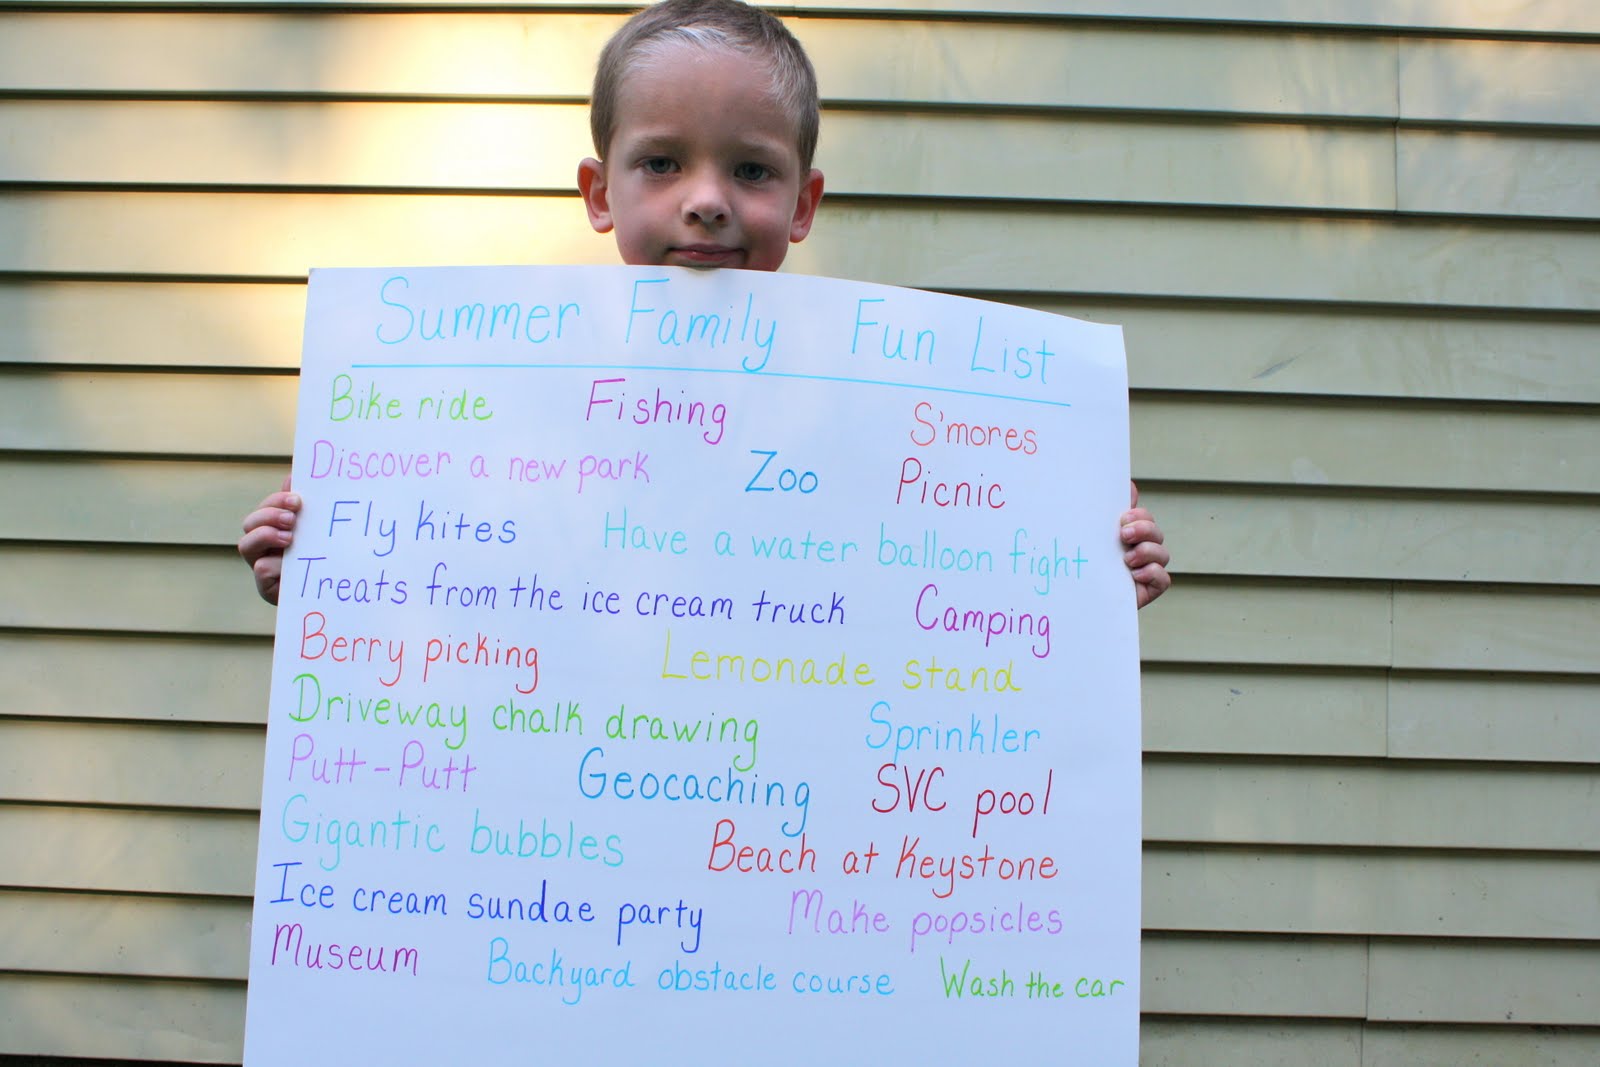 Summer Family Fun List
Bike ride Fishing S'mores
Discover a new park Zoo Picnic
Fly kites Have a water balloon fight
Treats from the ice cream truck Camping
Berry picking Lemonade stand
Driveway chalk drawing Sprinkler
Putt-Putt Geocaching SVC pool
Gigantic bubbles Beach at Keystone
Ice cream sundae party Make popsicles
Museum Backyard obstacle course Wash the car